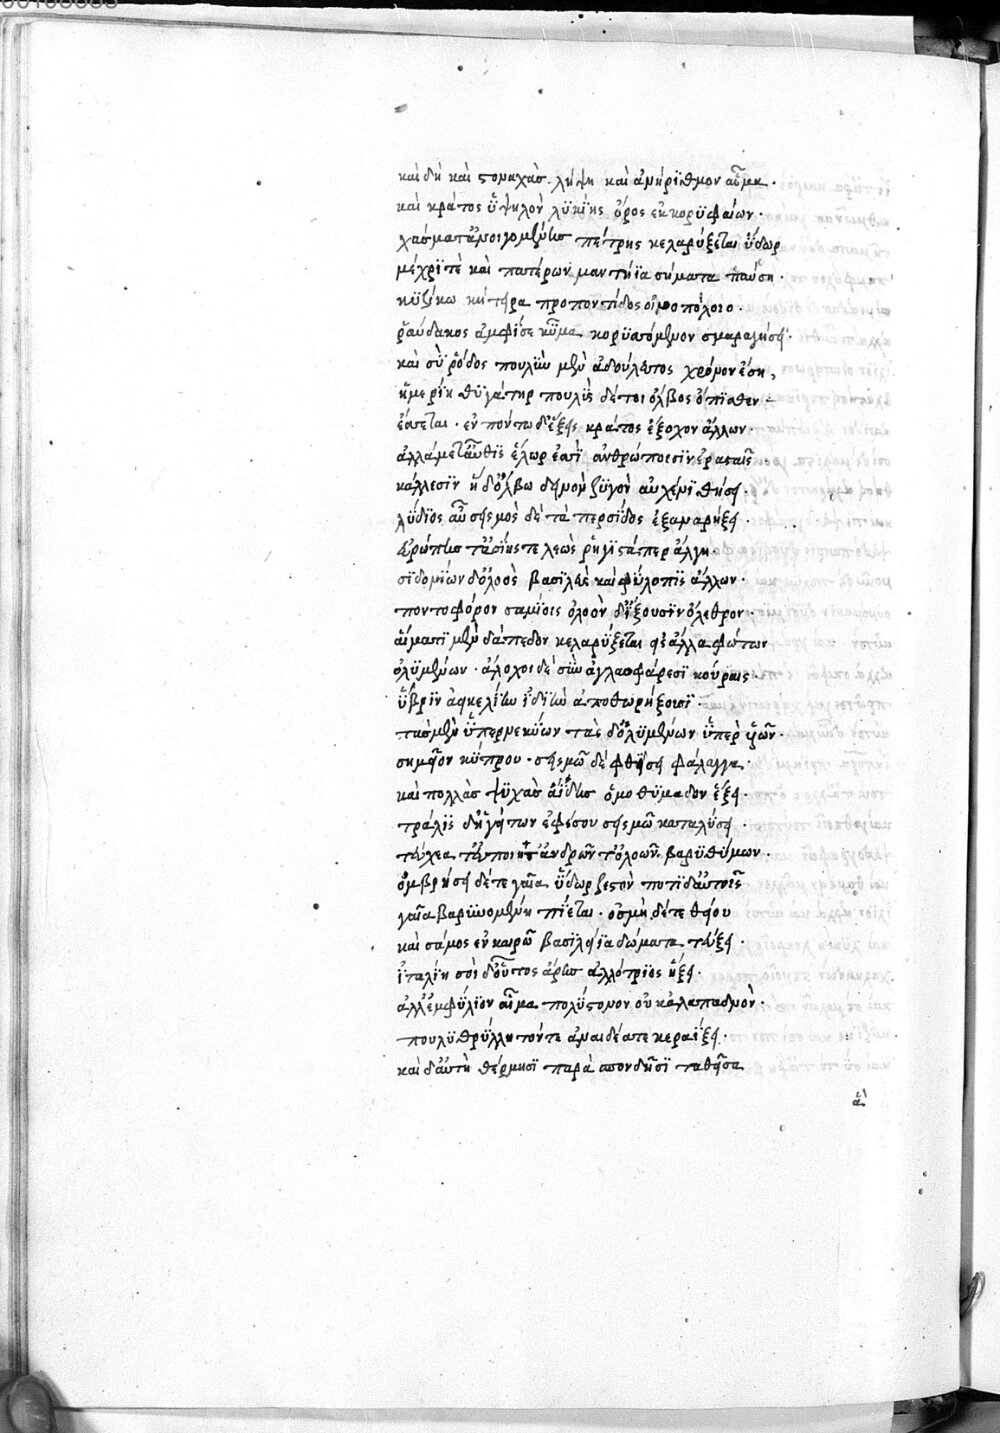 καὶ δὴ καὶ στομαχὰσ λήψη καὶ ἀμήριθμον αἷμα.
καὶ κράτος ὕψηλὸν λϋκίης ὄρος ἐκ κορϋφαίων.
χάσματ' ἀνοιγομένησ πέτρης κελαρύξεται ὕδωρ
μέχρϊ τὲ καὶ πατέρων μαντήϊα σήματα παύση.
κϋζϊκω κήτειρα προποντίδος οἰνοπόλοιο.
ῥαύδακος ἀμφίσε κῦμα κορϋσόμενον σμαραγήσει.
καὶ σὺ ῥόδος πουλὺν μὲν ἀδούλωτος χρόνον ἔση,
ἡμερίη θϋγάτηρ πουλὺς δέ τοι ὄλβος ὄπϊσθεν
ἔσεται. ἐν πόντω δἕξεις κράτος ἔξοχον ἄλλων.
ἀλλὰ μεταῦθις ἕλωρ ἔση ἀνθρώποισϊν ἐρασταῖς.
κάλλεσϊν ἠδ' ὄλβω δεινὸν ζϋγὸν αὐχένϊ θήσει.
λύδϊος αὖ σεισμὸς δὲ τὰ περσίδος ἐξαμαρήξει
εὐρώπησ τ' ἀσίης τε λεὼς ῥήγιστά περ ἄλγη.
σϊδονίων δ' ὀλοὸς βασϊλεὺς καὶ φύλοπϊς ἄλλων.
ποντοφόρον σαμίοις ὀλοὸν δ' ἕξουσϊν ὄλεθρον.
αἵματϊ μὲν δάπεδον κελαρύξεται ἃλα φώτων
ὀλϋμένων. ἄλοχοι δὲ σὺν ἀγλαοφάρεσϊ κούραις
ὕβρϊν ἀεικελίην ϊδίην ἀποθωρήξοισϊ.
τὰσ μὲν ὕπερ νεκύων τὰς δ' ὀλϋμένων ὕπερ υἱῶν.
σημεῖον κύπρου. σεισμῶ δὲ φθήσει φάλαγγα.
καὶ πολλὰσ ψϋχὰσ ἀΐδησ ὁμοθϋμαδὸν ἕξει.
τράλϊς δ' ἡ γείτων ἐφέσου σεισμῶ καταλύσει.
τεύχεα τ' εὐποίητ' ἀνδρῶν τ' ὀλοῶν βαρϋθύμων.
ὀμβρήσει δέ τε γαῖα ὕδωρ ζεστὸν ποτὶ δ' αὐτοῖς
γαῖα βαρϋνομένη πίεται. ὀσμὴ δέ τε θείου
καὶ σάμος ἐν καιρῶ βασϊλήϊα δώματα τεύξει.
ἰταλίη σοὶ δ' οὔτος ἄρησ ἀλλότρϊος ἥξει.
ἀλλ' ἐμφύλϊον αἷμα πολύστονον οὐκ ἀλαπαδνὸν.
πουλϋθρϋλλητόν τε ἀναιδέα τε κεραΐξει.
καὶ δ' αὐτὴ θέρμησϊ παρὰ σποδϊῆσϊ ταθεῖσα